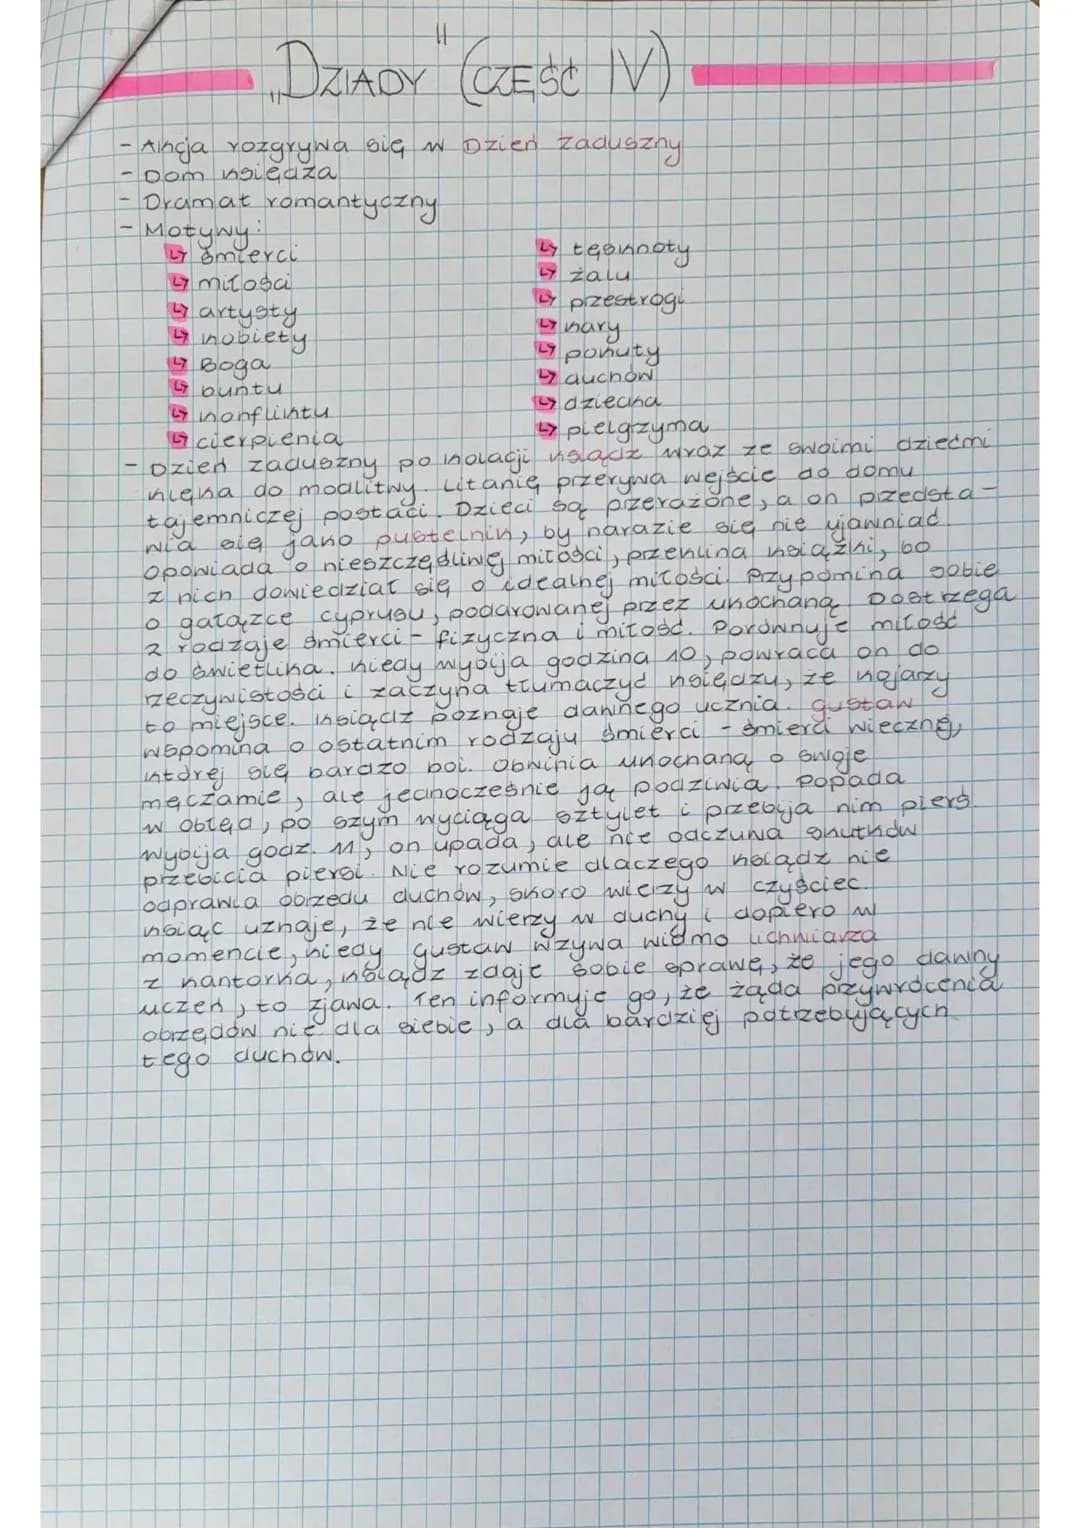 „DZIADY" (CZĘŚĆ IV)
- Akcja rozgrywa się w Dzień zaduszny
- Dom księdza
- Dramat romantyczny
- Motywy:
↳ śmierci
↳ miłości
↳ artysty
↳ kobiety
↳ Boga
↳ buntu
↳ konfliktu
↳ cierpienia
↳ tęsknoty
↳ żalu
↳ przestrogi
↳ kary
↳ pokuty
↳ duchów
↳ dziecka
↳ pielgrzyma
- Dzień zaduszny po kolacji ksiądz wraz ze swoimi dziećmi
klęka do modlitwy. Litanię przerywa wejście do domu
tajemniczej postaci. Dzieci są przerażone, a on przedsta-
wia się jako pustelnik, by narazie się nie ujawniać.
Opowiada o nieszczęśliwej miłości, przeklina książki, bo
z nich dowiedział się o idealnej miłości. Przypomina sobie
o gałązce cyprusu, podarowanej przez ukochaną. Dostrzega
2 rodzaje śmierci - fizyczna i miłość. Porównuje miłość
do świetlika. Kiedy wybija godzina 10, powraca on do
rzeczywistości i zaczyna tłumaczyć księdzu, że kojarzy
to miejsce. Ksiądz poznaje dawnego ucznia. Gustaw
wspomina o ostatnim rodzaju śmierci - śmierci wiecznej,
której się bardzo boi. Obwinia ukochaną o swoje
męczarnie, ale jednocześnie ją podziwia. Popada
w obłęd, po szym wyciąga sztylet i przebija nim pierś.
Wybija godz. 11, on upada, ale nie odczuwa skutków
przebicia piersi. Nie rozumie dlaczego ksiądz nie
odprawia obrzędu duchów, skoro wierzy w czyściec.
Ksiąc uznaje, że nie wierzy w duchy i dopiero w
momencie, kiedy Gustaw wzywa widmo lichwiarza
z kantorka, ksiądz zdaje sobie sprawę, że jego dawny
uczeń, to zjawa. Ten informuje go, że żąda przywrócenia
obrzędów nie dla siebie, a dla bardziej potrzebujących
tego duchów.